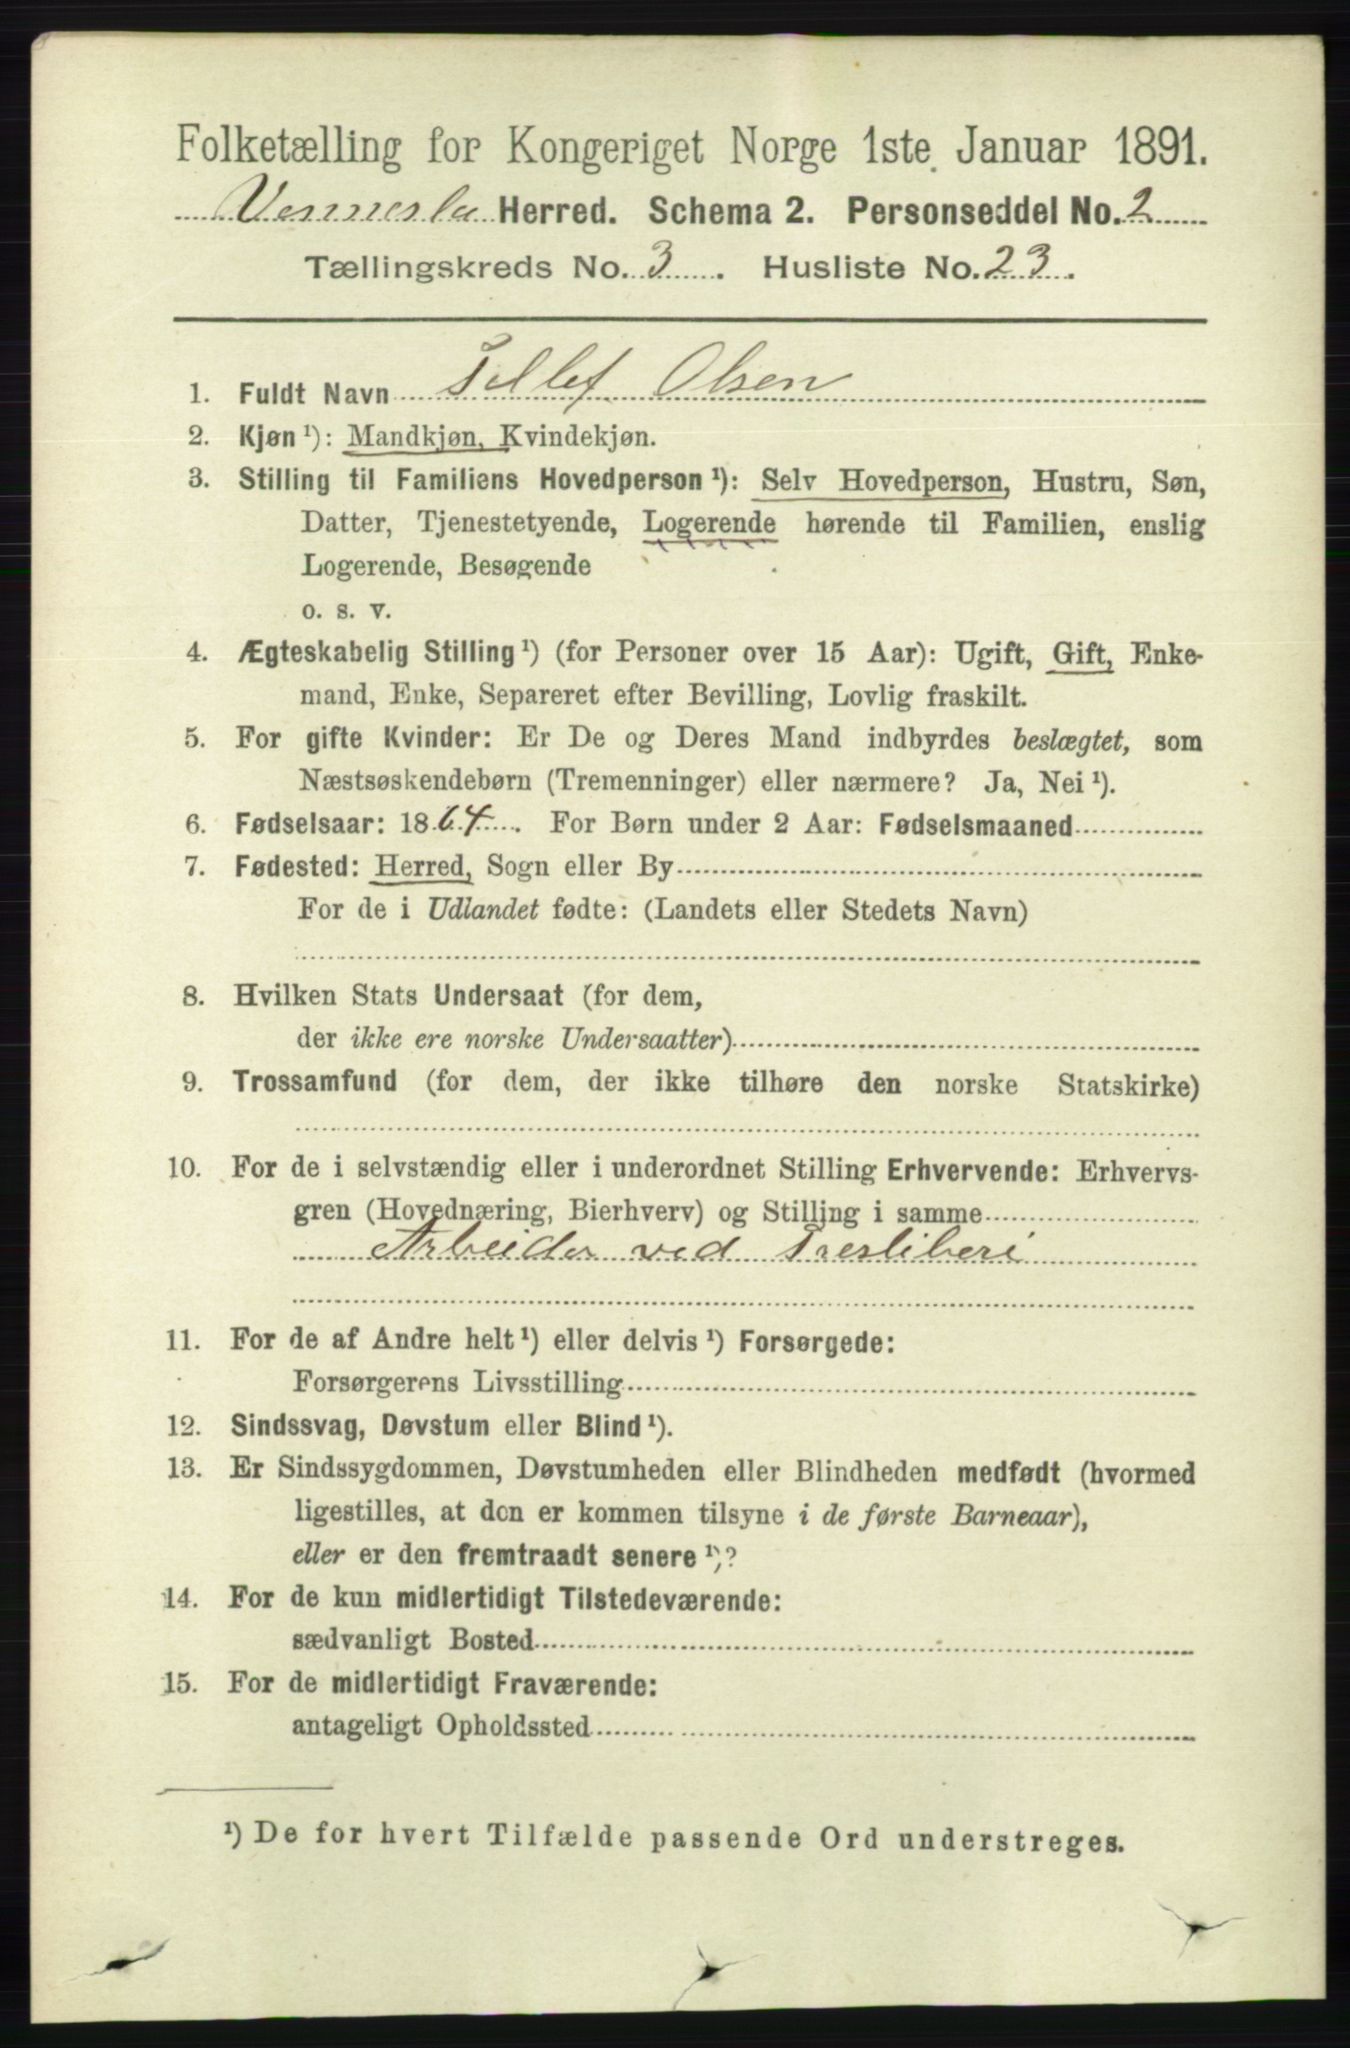 Folketælling for Kongeriget Norge 1ste Januar 1891.
Vennesla Herred. Schema 2. Personseddel No. 2
Tællingskreds No. 3. Husliste No. 23.
1. Fuldt Navn Tellef Olsen
2. Kjøn ¹): Mandkjøn, Kvindekjøn.
3. Stilling til Familiens Hovedperson ¹): Selv Hovedperson, Hustru, Søn,
Datter, Tjenestetyende, Logerende hørende til Familien, enslig
Logerende, Besøgende
o. s. v.
4. Ægteskabelig Stilling ¹) (for Personer over 15 Aar): Ugift, Gift, Enke-
mand, Enke, Separeret efter Bevilling, Lovlig fraskilt.
5. For gifte Kvinder: Er De og Deres Mand indbyrdes beslægtet, som
Næstsøskendebørn (Tremenninger) eller nærmere? Ja, Nei ¹).
6. Fødselsaar: 1864. For Børn under 2 Aar: Fødselsmaaned
7. Fødested: Herred, Sogn eller By
For de i Udlandet fødte: (Landets eller Stedets Navn)
8. Hvilken Stats Undersaat (for dem,
der ikke ere norske Undersaatter)
9. Trossamfund (for dem, der ikke tilhøre den norske Statskirke)
10. For de i selvstændig eller i underordnet Stilling Erhvervende: Erhvervs-
gren (Hovednæring, Bierhverv) og Stilling i samme
Arbeider ved Træsliberi
11. For de af Andre helt ¹) eller delvis ¹) Forsørgede:
Forsørgerens Livsstilling
12. Sindssvag, Døvstum eller Blind ¹).
13. Er Sindssygdommen, Døvstumheden eller Blindheden medfødt (hvormed
ligestilles, at den er kommen tilsyne i de første Barneaar),
eller er den fremtraadt senere ¹)?
14. For de kun midlertidigt Tilstedeværende:
sædvanligt Bosted
15. For de midlertidigt Fraværende:
antageligt Opholdssted
¹) De for hvert Tilfælde passende Ord understreges.